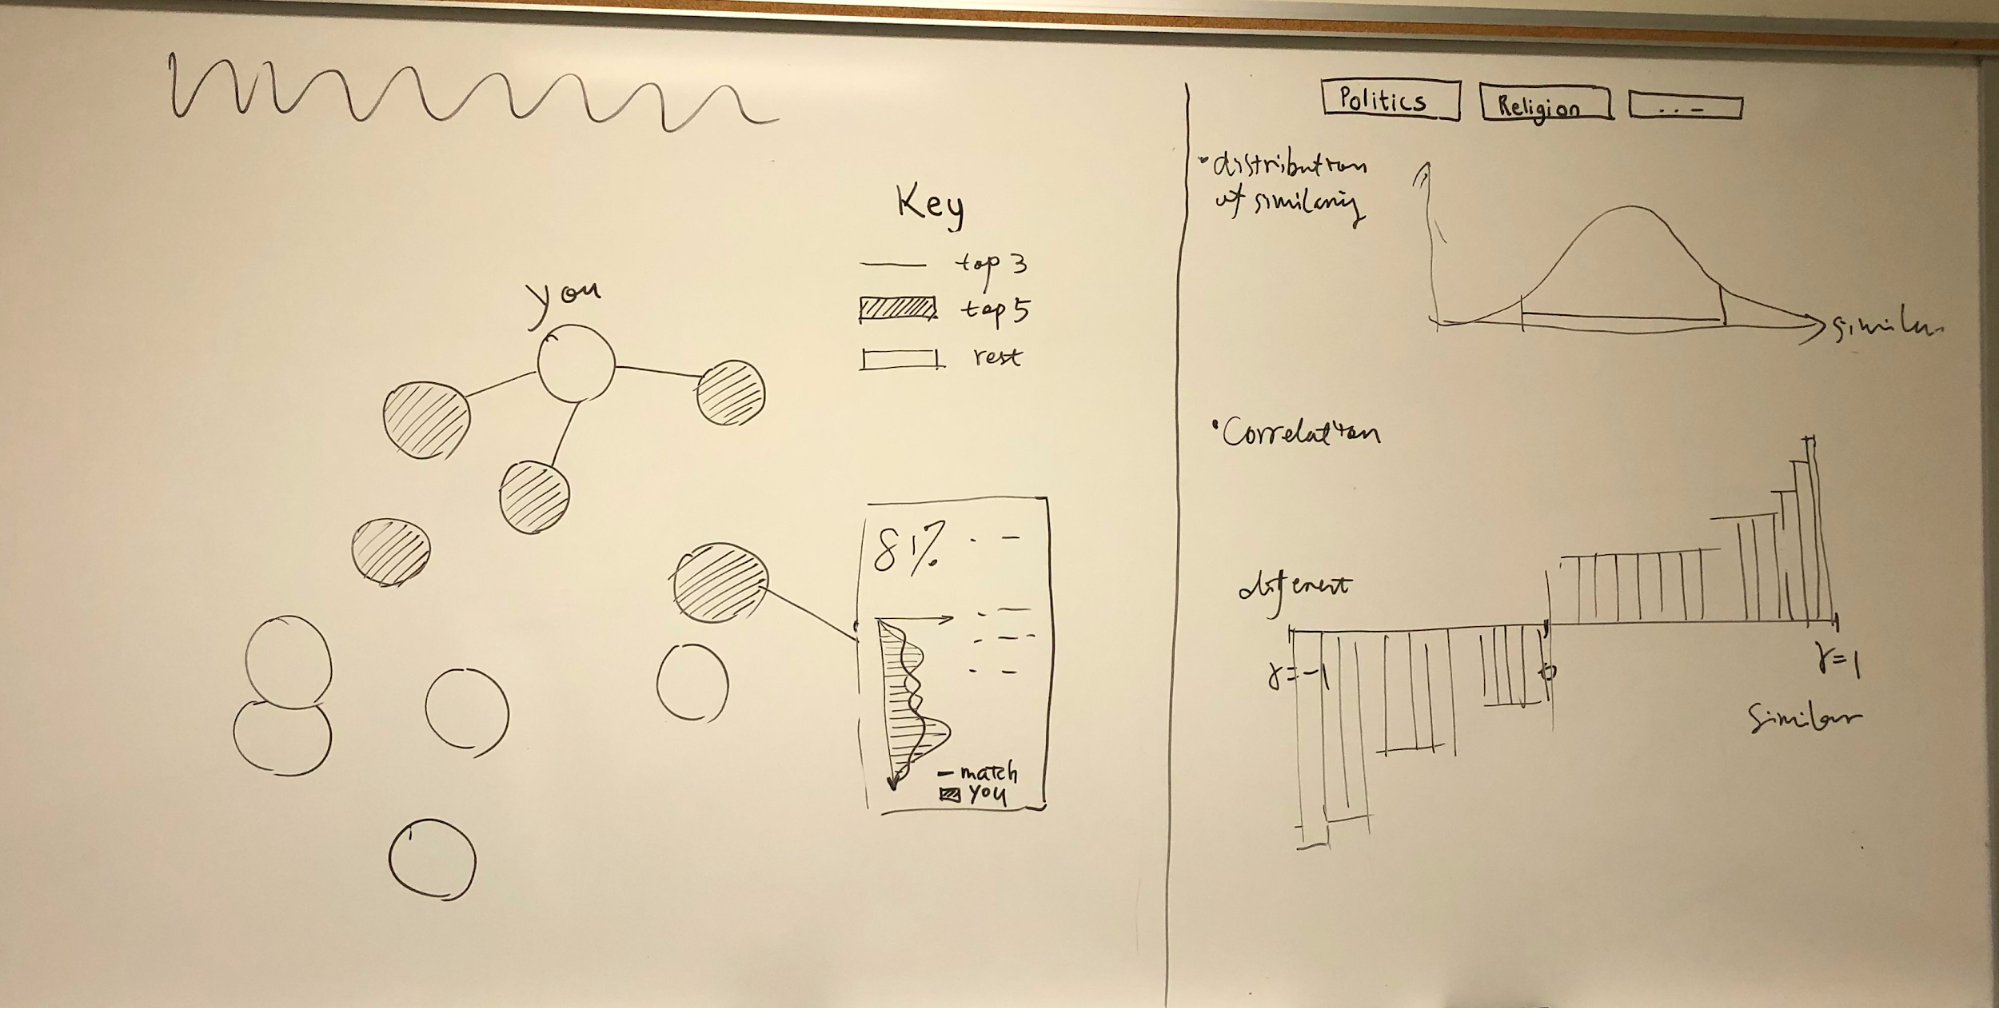 you
Key
top 3
top 5
rest
81%
match
you
Politics
Religion
...
• distribution
of similarity
• Correlation
different
r=-1
0
r=1
Similar